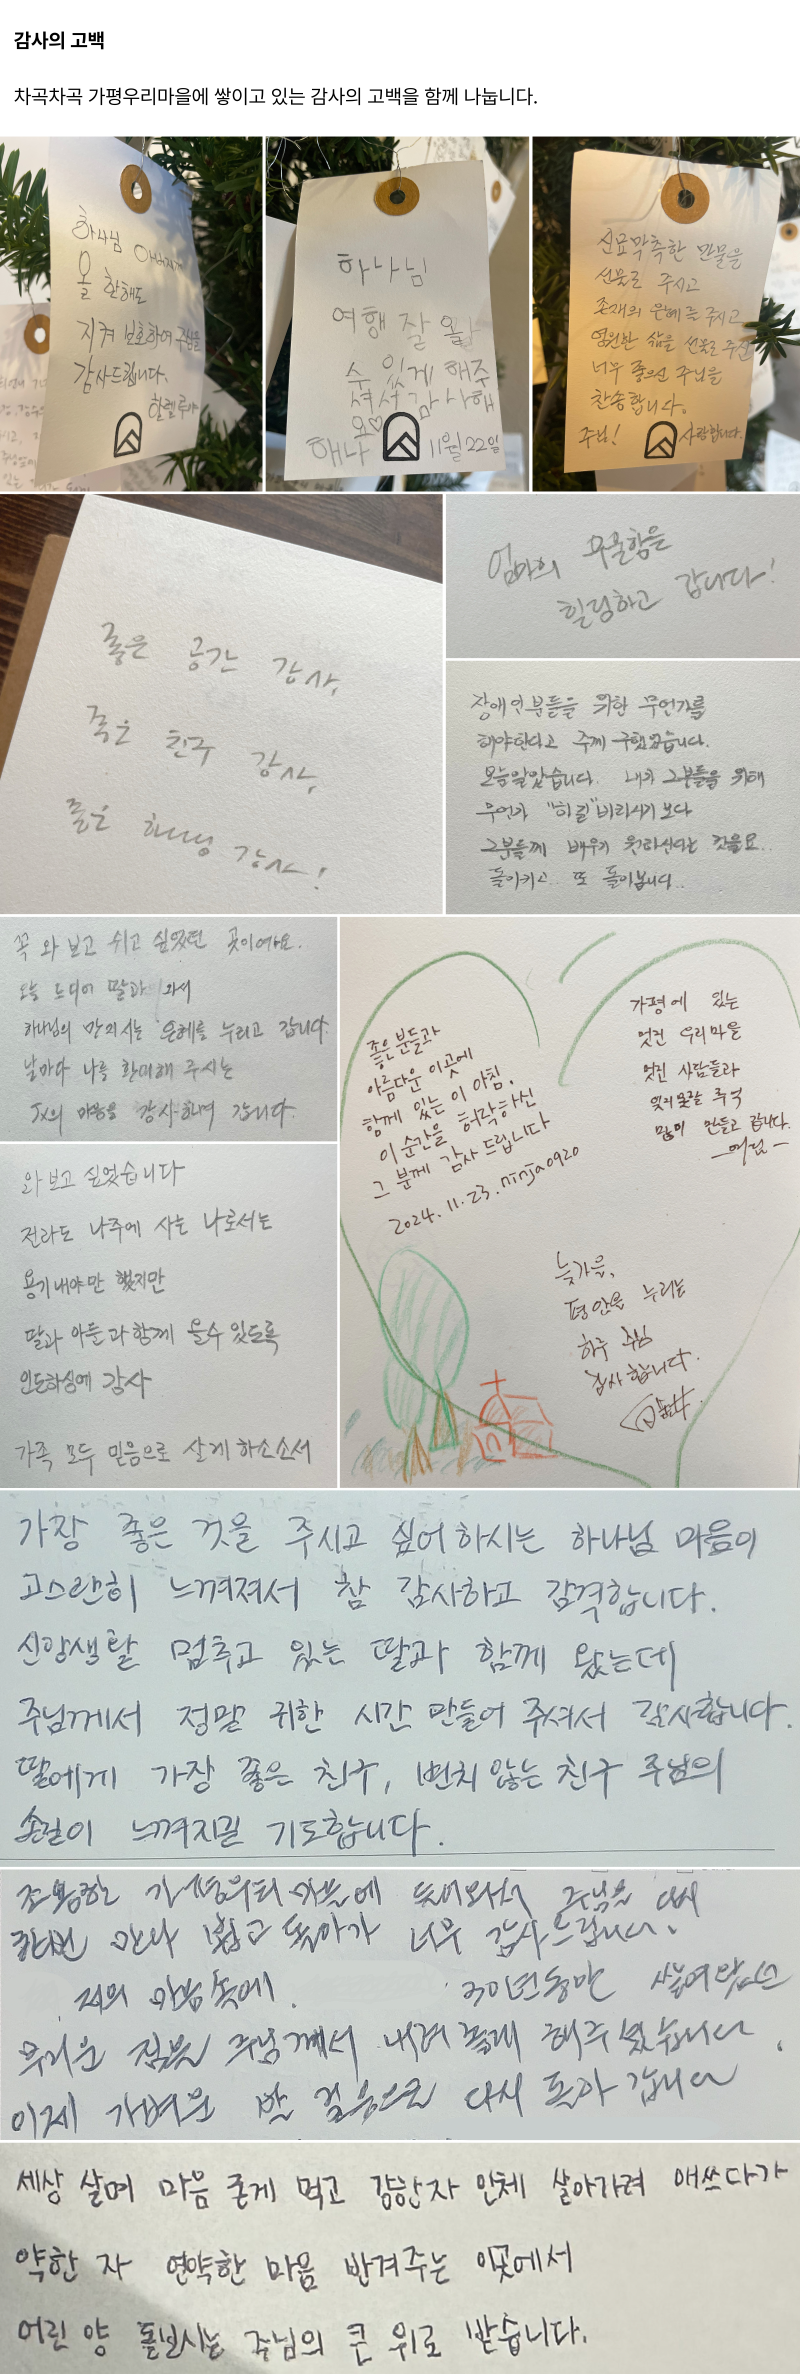 감사의 고백
차곡차곡 가평우리마을에 쌓이고 있는 감사의 고백을 함께 나눕니다.
하나님 아버지께
올 한해도
지켜 보호하여 주심을
감사드립니다.
할렐루야
하나님
여행 잘 올
수 있게 해주
셔서 감사해
요♡
해나 11월 22일
신묘막측한 만물을
선물로 주시고
존재의 은혜를 주시고
영원한 삶을 선물로 주신
너무 좋으신 주님을
찬송합니다.
주님! 사랑합니다.
좋은 공간 감사,
좋은 친구 감사,
좋은 하나님 감사!
엄마의 우울함을
힐링하고 갑니다!
장애인분들을 위한 무언가를
해야한다고 주께 구했었습니다.
오늘알았습니다. 내가 그분들을 위해
무언가 "하길"바라시기 보다
그분들께 배우기 원하신다는 것을요..
돌이키고.. 또 돌아봅니다..
꼭 와 보고 쉬고 싶었던 곳이예요.
오늘 드디어 딸과 와서
하나님의 만지시는 은혜를 누리고 갑니다.
날마다 나를 환대해 주시는
JX의 마음을 감사하며 갑니다.
와 보고 싶었습니다
전라도 나주에 사는 나로서는
용기내야만 했지만
딸과 아들과 함께 올수 있도록
인도하심에 감사
가족 모두 믿음으로 살게 하소소서
좋은 분들과
아름다운 이곳에
함께 있는 이 아침,
이 순간을 허락하신
그 분께 감사 드립니다
2024. 11. 23. ninja0920
가평에 있는
멋진 우리마을
멋진 사람들과
잊지못할 추억
많이 만들고 갑니다.
늦가을,
평안을 누리는
하루 주님
감사합니다.
가장 좋은 것을 주시고 싶어하시는 하나님 마음이
고스란히 느껴져서 참 감사하고 감격합니다.
신앙생활 멈추고 있는 딸과 함께 왔는데
주님께서 정말 귀한 시간 만들어 주셔서 감사합니다.
딸에게 가장 좋은 친구, 변치 않는 친구 주님의
손길이 느껴지길 기도합니다.
조용한 가평우리마을에 들어와서 주님을 다시
한번 만나 뵙고 돌아가 너무 감사드립니다.
저의 마음속에. 30년동안 쌓여있던
무거운 짐을 주님께서 내려놓게 해주셨습니다.
이제 가벼운 발 걸음으로 다시 돌아 갑니다
세상 살며 마음 굳게 먹고 강한자 인체 살아가려 애쓰다가
약한 자 연약한 마음 반겨주는 이곳에서
어린 양 돌보시는 주님의 큰 위로 받습니다.